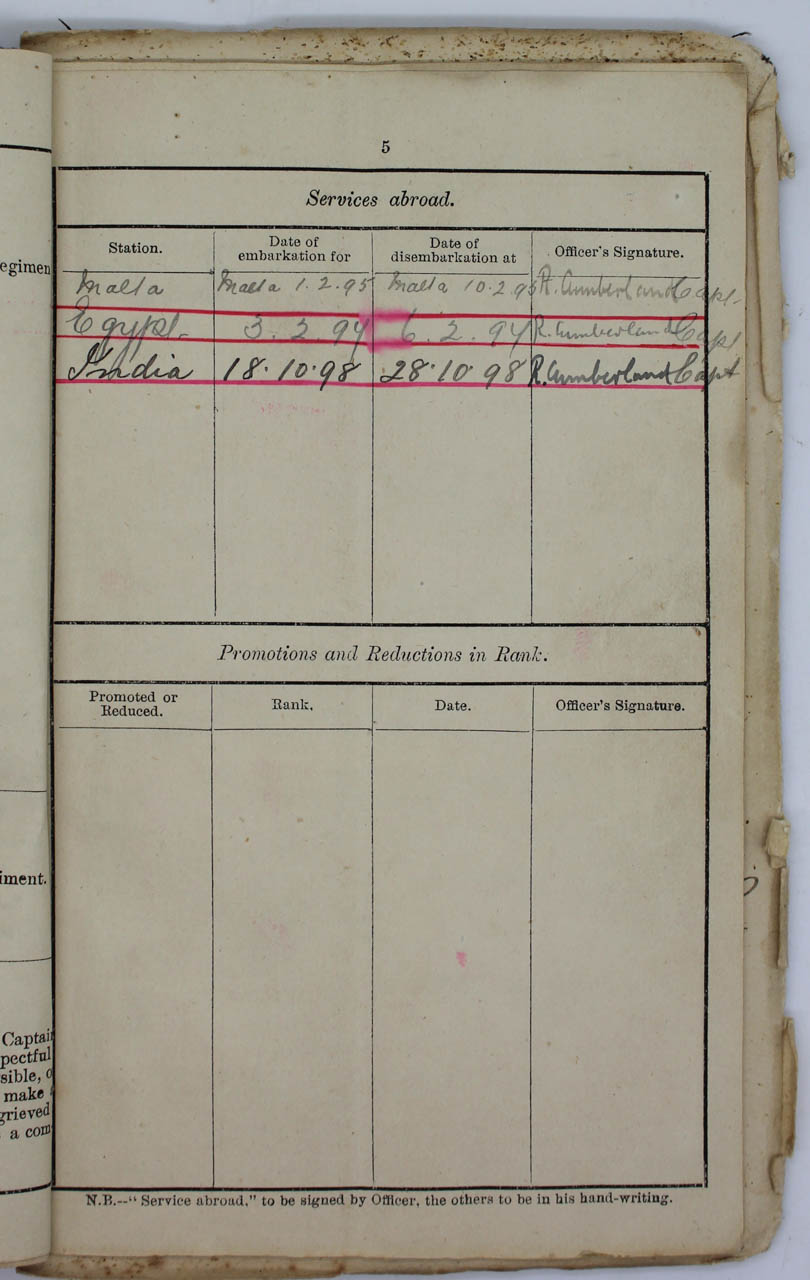 5
Services abroad.
Station. Date of embarkation for Date of disembarkation at Officer's Signature.
Malta Malta 1.2.95 Malta 10.2.95 R. Cumberland Capt.
Egypt 3.2.97 6.2.97 R. Cumberland Capt
India 18.10.98 28.10.98 R. Cumberland Capt
Promotions and Reductions in Rank.
Promoted or Reduced. Rank. Date. Officer's Signature.
N.B.--"Service abroad," to be signed by Officer, the others to be in his hand-writing.
egimen
iment.
Captai
pectful
sible, o
make
grieved
a com